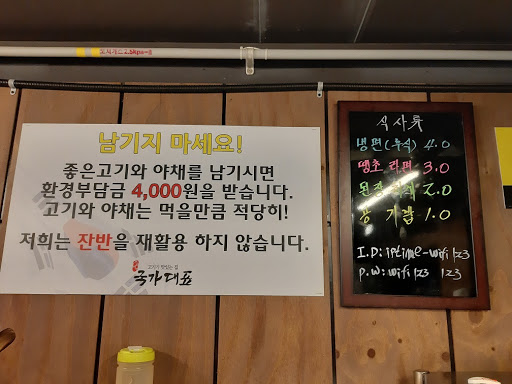 남기지 마세요!
좋은고기와 야채를 남기시면
환경부담금 4,000원을 받습니다.
고기와 야채는 먹을만큼 적당히!
저희는 잔반을 재활용 하지 않습니다.
국가대표
식사류
냉면(후식) 4.0
땡초 라면 3.0
된장찌개 2.0
공기밥 1.0
I.D: iptime-wifi 123
P.W: wifi123 123